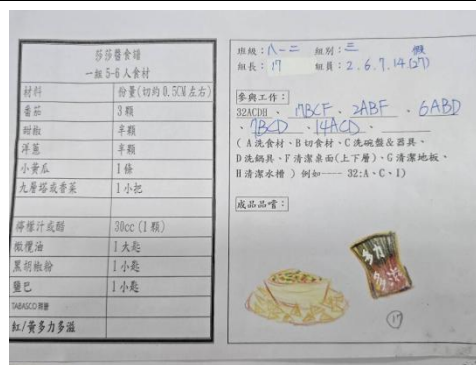 莎莎醬食譜
一組 5-6 人食材
材料 份量(切約 0.5CM 左右)
番茄 3 顆
甜椒 半顆
洋蔥 半顆
小黃瓜 1 條
九層塔或香菜 1 小把
檸檬汁或醋 30cc (1 顆)
橄欖油 1 大匙
黑胡椒粉 1 小匙
鹽巴 1 小匙
TABASCO
紅/黃多力多滋
班級：八-二 組別：三
組長：17 組員：2.6.7.14.(27)
參與工作：
32ACDH、17BCF、2ABF、6ABD
、7BCD、14ACD、
( A 洗食材、B 切食材、C 洗碗盤&器具、
D 洗鍋具、F 清潔桌面(上下層)、G 清潔地板、
H 清潔水槽 ) 例如---- 32:A、C、I)
成品品嚐：
多力
多滋
17